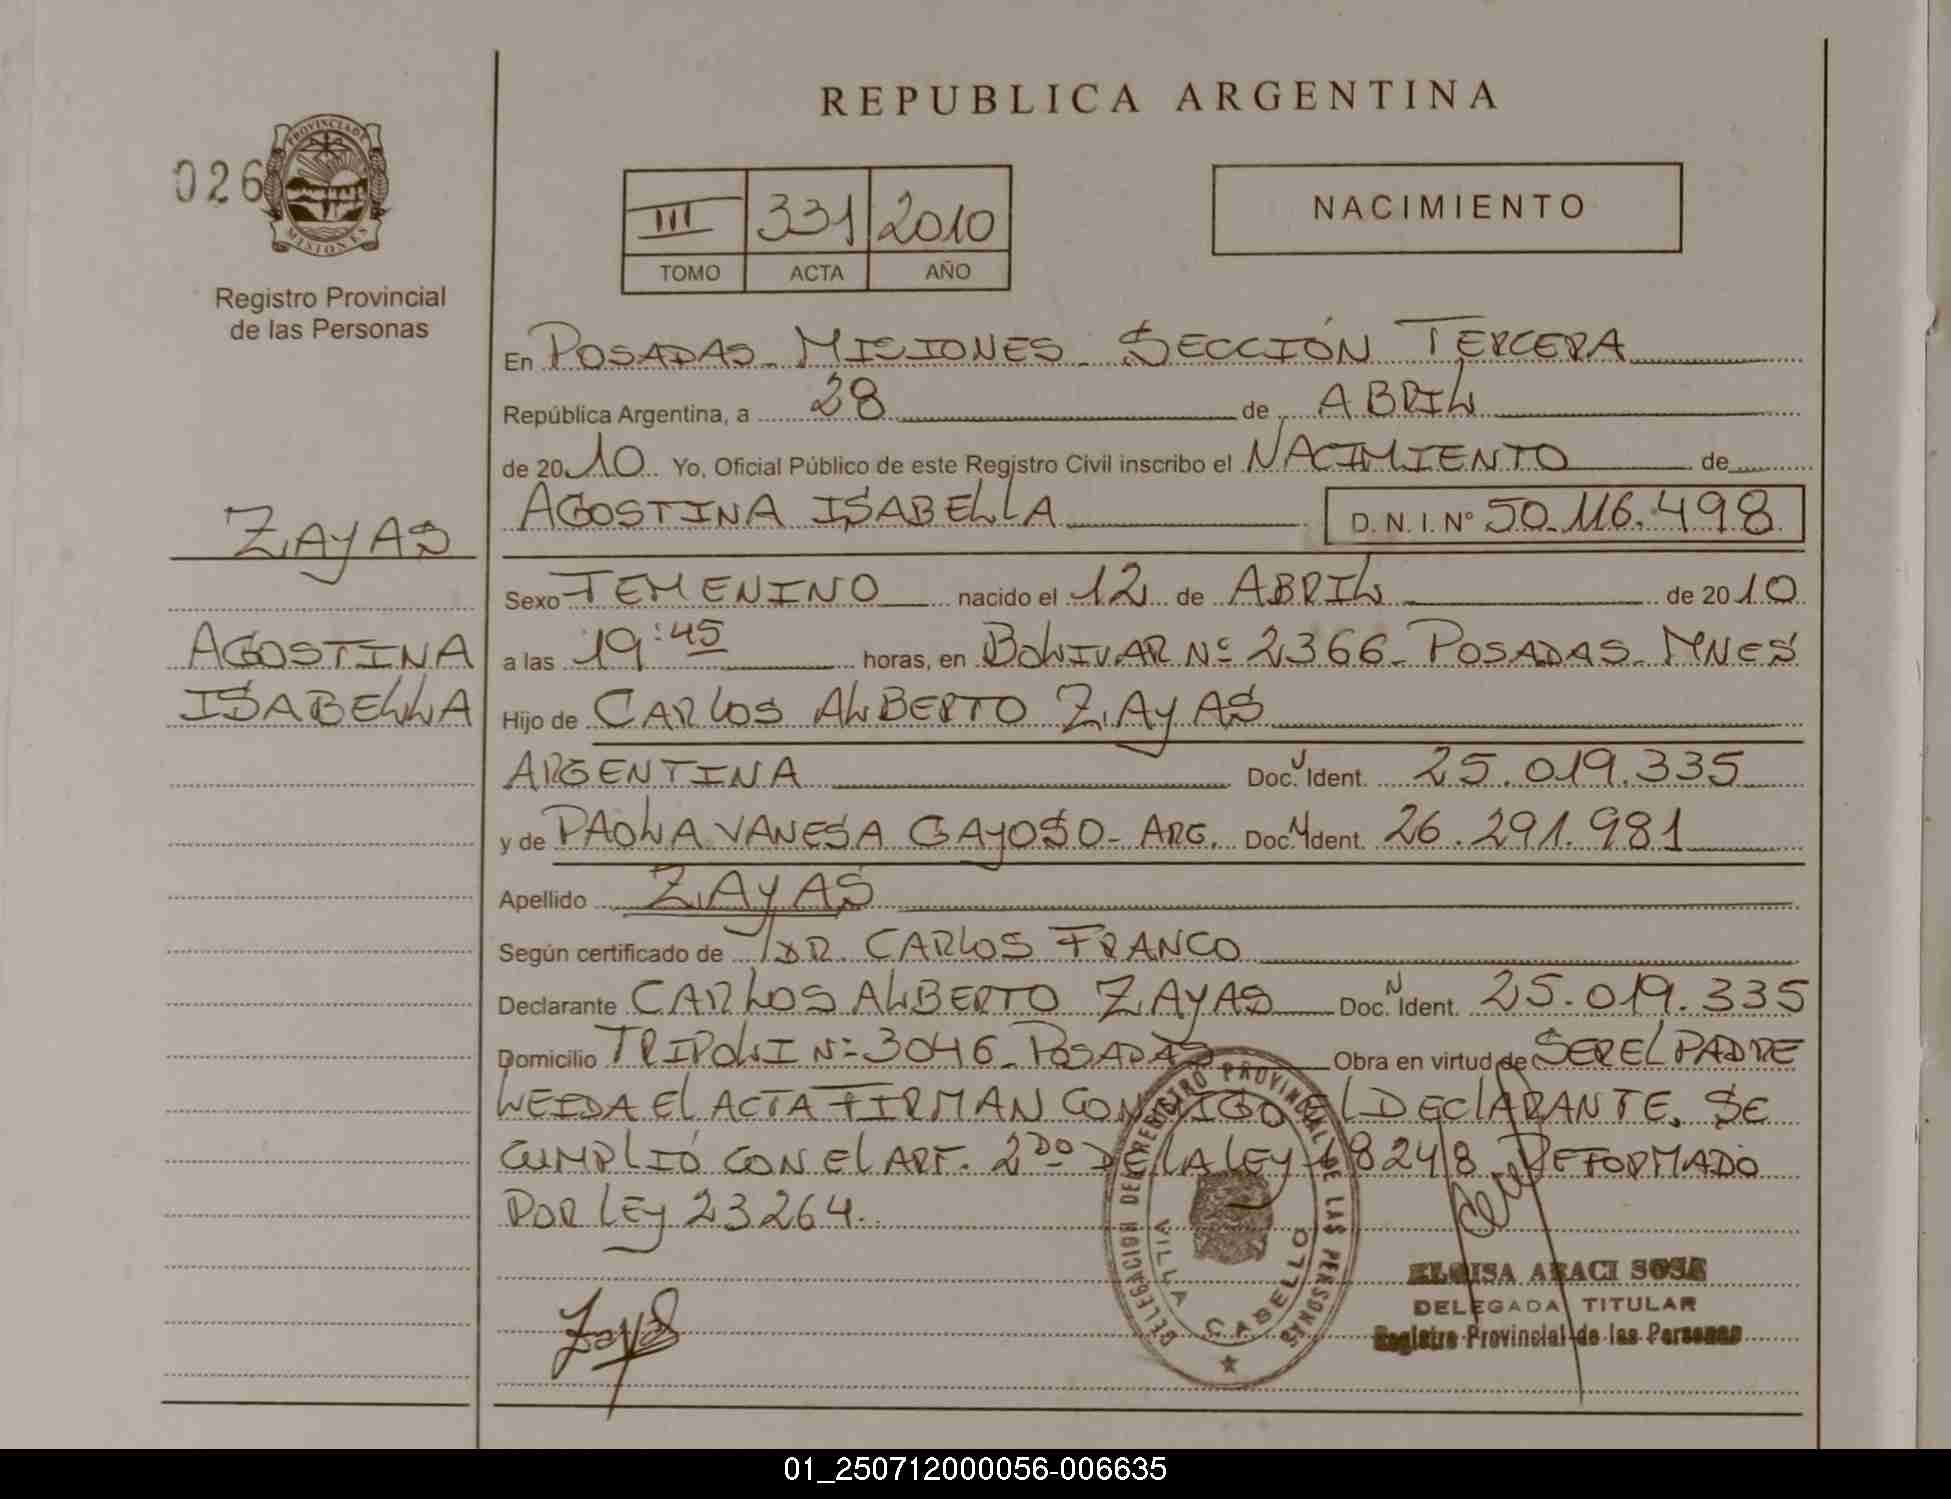 REPUBLICA ARGENTINA
026
PROVINCIA DE
MISIONES
Registro Provincial
de las Personas
III 331 2010
TOMO ACTA AÑO
NACIMIENTO
En POSADAS - MISIONES - SECCIÓN TERCERA
República Argentina, a 28 de ABRIL
de 2010 Yo, Oficial Público de este Registro Civil inscribo el NACIMIENTO de
AGOSTINA ISABELLA D.N.I. Nº 50.116.498
ZAYAS
AGOSTINA
ISABELLA
Sexo FEMENINO nacido el 12 de ABRIL de 2010
a las 19:45 horas, en BOLIVAR Nº 2366 - POSADAS - MNES
Hijo de CARLOS ALBERTO ZAYAS
ARGENTINA Doc. N Ident. 25.019.335
y de PAOLA VANESA GAYOSO - ARG. Doc. N Ident. 26.291.981
Apellido ZAYAS
Según certificado de DR. CARLOS FRANCO
Declarante CARLOS ALBERTO ZAYAS Doc. N Ident. 25.019.335
Domicilio TRIPOLI Nº 3046 - POSADAS Obra en virtud de SER EL PADRE
LEIDA EL ACTA FIRMAN CONMIGO EL DECLARANTE. SE
CUMPLIÓ CON EL ART. 2DO DE LA LEY 18248 REFORMADO
POR LEY 23264.
DELEGACION DEL REGISTRO PROVINCIAL DE LAS PERSONAS
VILLA CABELLO
Zayas
ELOISA ARACI SOSA
DELEGADA TITULAR
Registro Provincial de las Personas
01_250712000056-006635